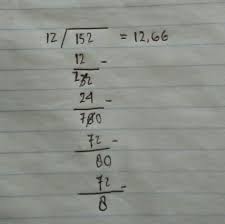 12 / 152 = 12,66
12 -
24 -
72 -
80
72 -
8